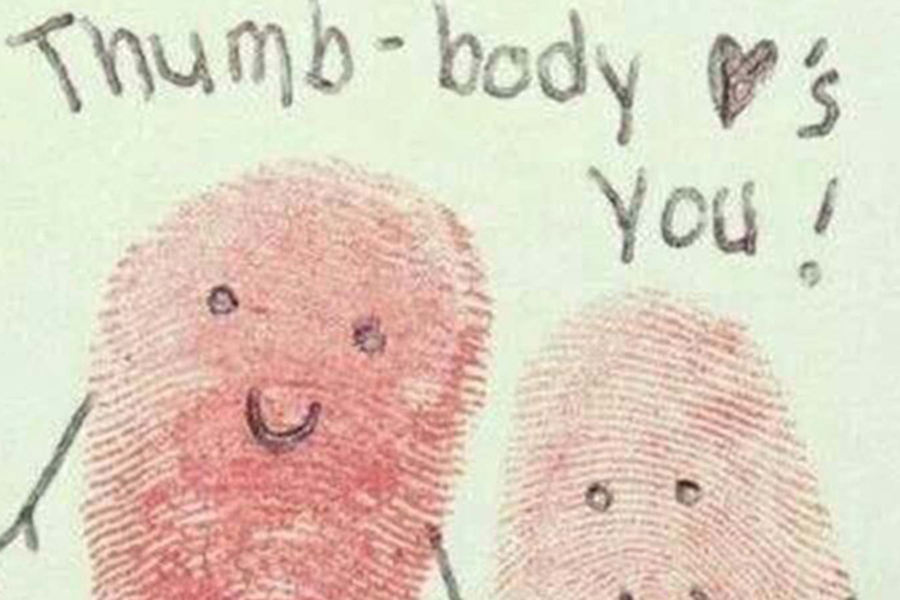 Thumb-body ♥'s
You!